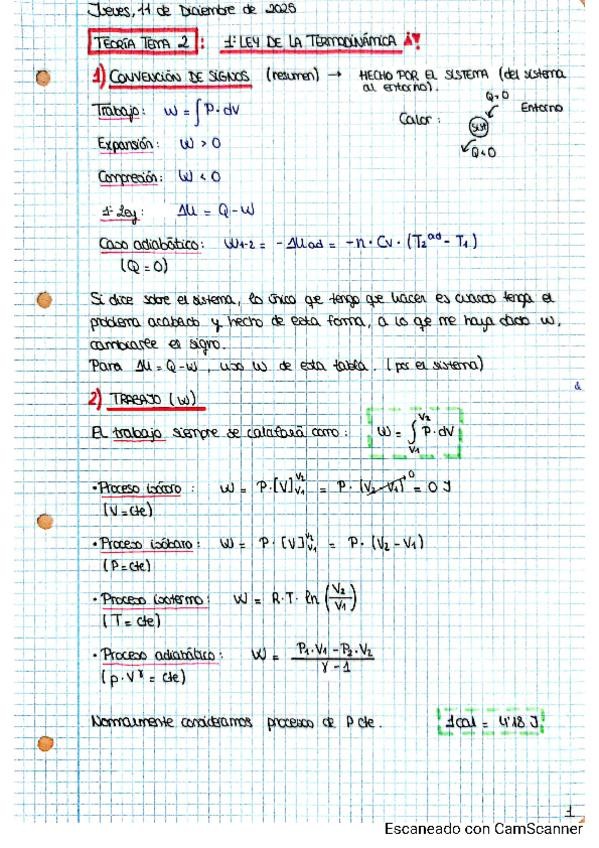 Jueves, 11 de Diciembre de 2025
TEORÍA TEMA 2 : 1ª LEY DE LA TERMODINÁMICA
1) CONVENCIÓN DE SIGNOS (resumen) → HECHO POR EL SISTEMA (del sistema
al entorno).
Trabajo: W = ∫ P·dV
Calor: Q>0 Entorno
Sist
Q<0
Expansión: W > 0
Compresión: W < 0
1ª Ley: ΔU = Q - W
Caso adiabático: W1-2 = -ΔUad = -n·Cv·(T2ad - T1)
(Q = 0)
Si dice sobre el sistema, lo único qe tengo que hacer es cuando tenga el
problema acabado y hecho de esta forma, a lo qe me haya dado W,
cambiarle el signo.
Para ΔU = Q - W, uso W de esta tabla. (por el sistema)
2) TRABAJO (W)
El trabajo siempre se calculará como: W = ∫V1V2 P·dV
• Proceso isócoro: W = P·[V]V1V2 = P·(V2-V1)0 = 0 J
(V = cte)
• Proceso isóbaro: W = P·[V]V1V2 = P·(V2-V1)
(P = cte)
• Proceso isotermo: W = R·T·ln(V2/V1)
(T = cte)
• Proceso adiabático: W = P1·V1 - P2·V2 / γ - 1
(p·Vγ = cte)
Normalmente consideramos procesos de P cte. 1 cal = 4'18 J
1
Escaneado con CamScanner